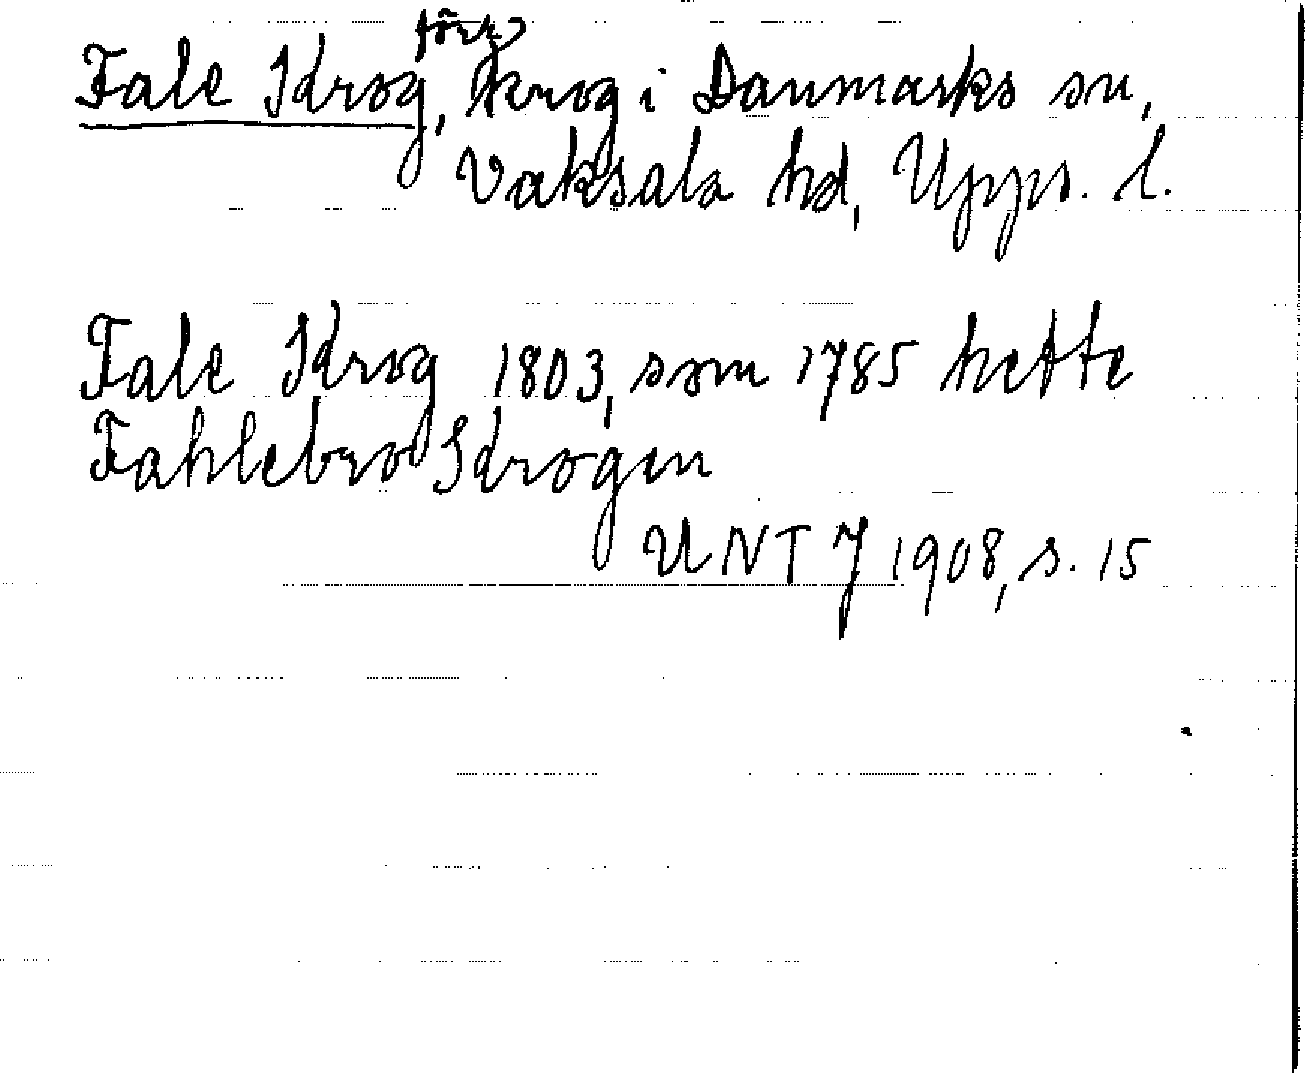 förr
Fale Krog, krog i Danmarks sn,
Vaksala hd, Upps. l.
Fale Krog 1803, som 1785 hette
Fahlebro Krogen
UNT 7 1908, s. 15